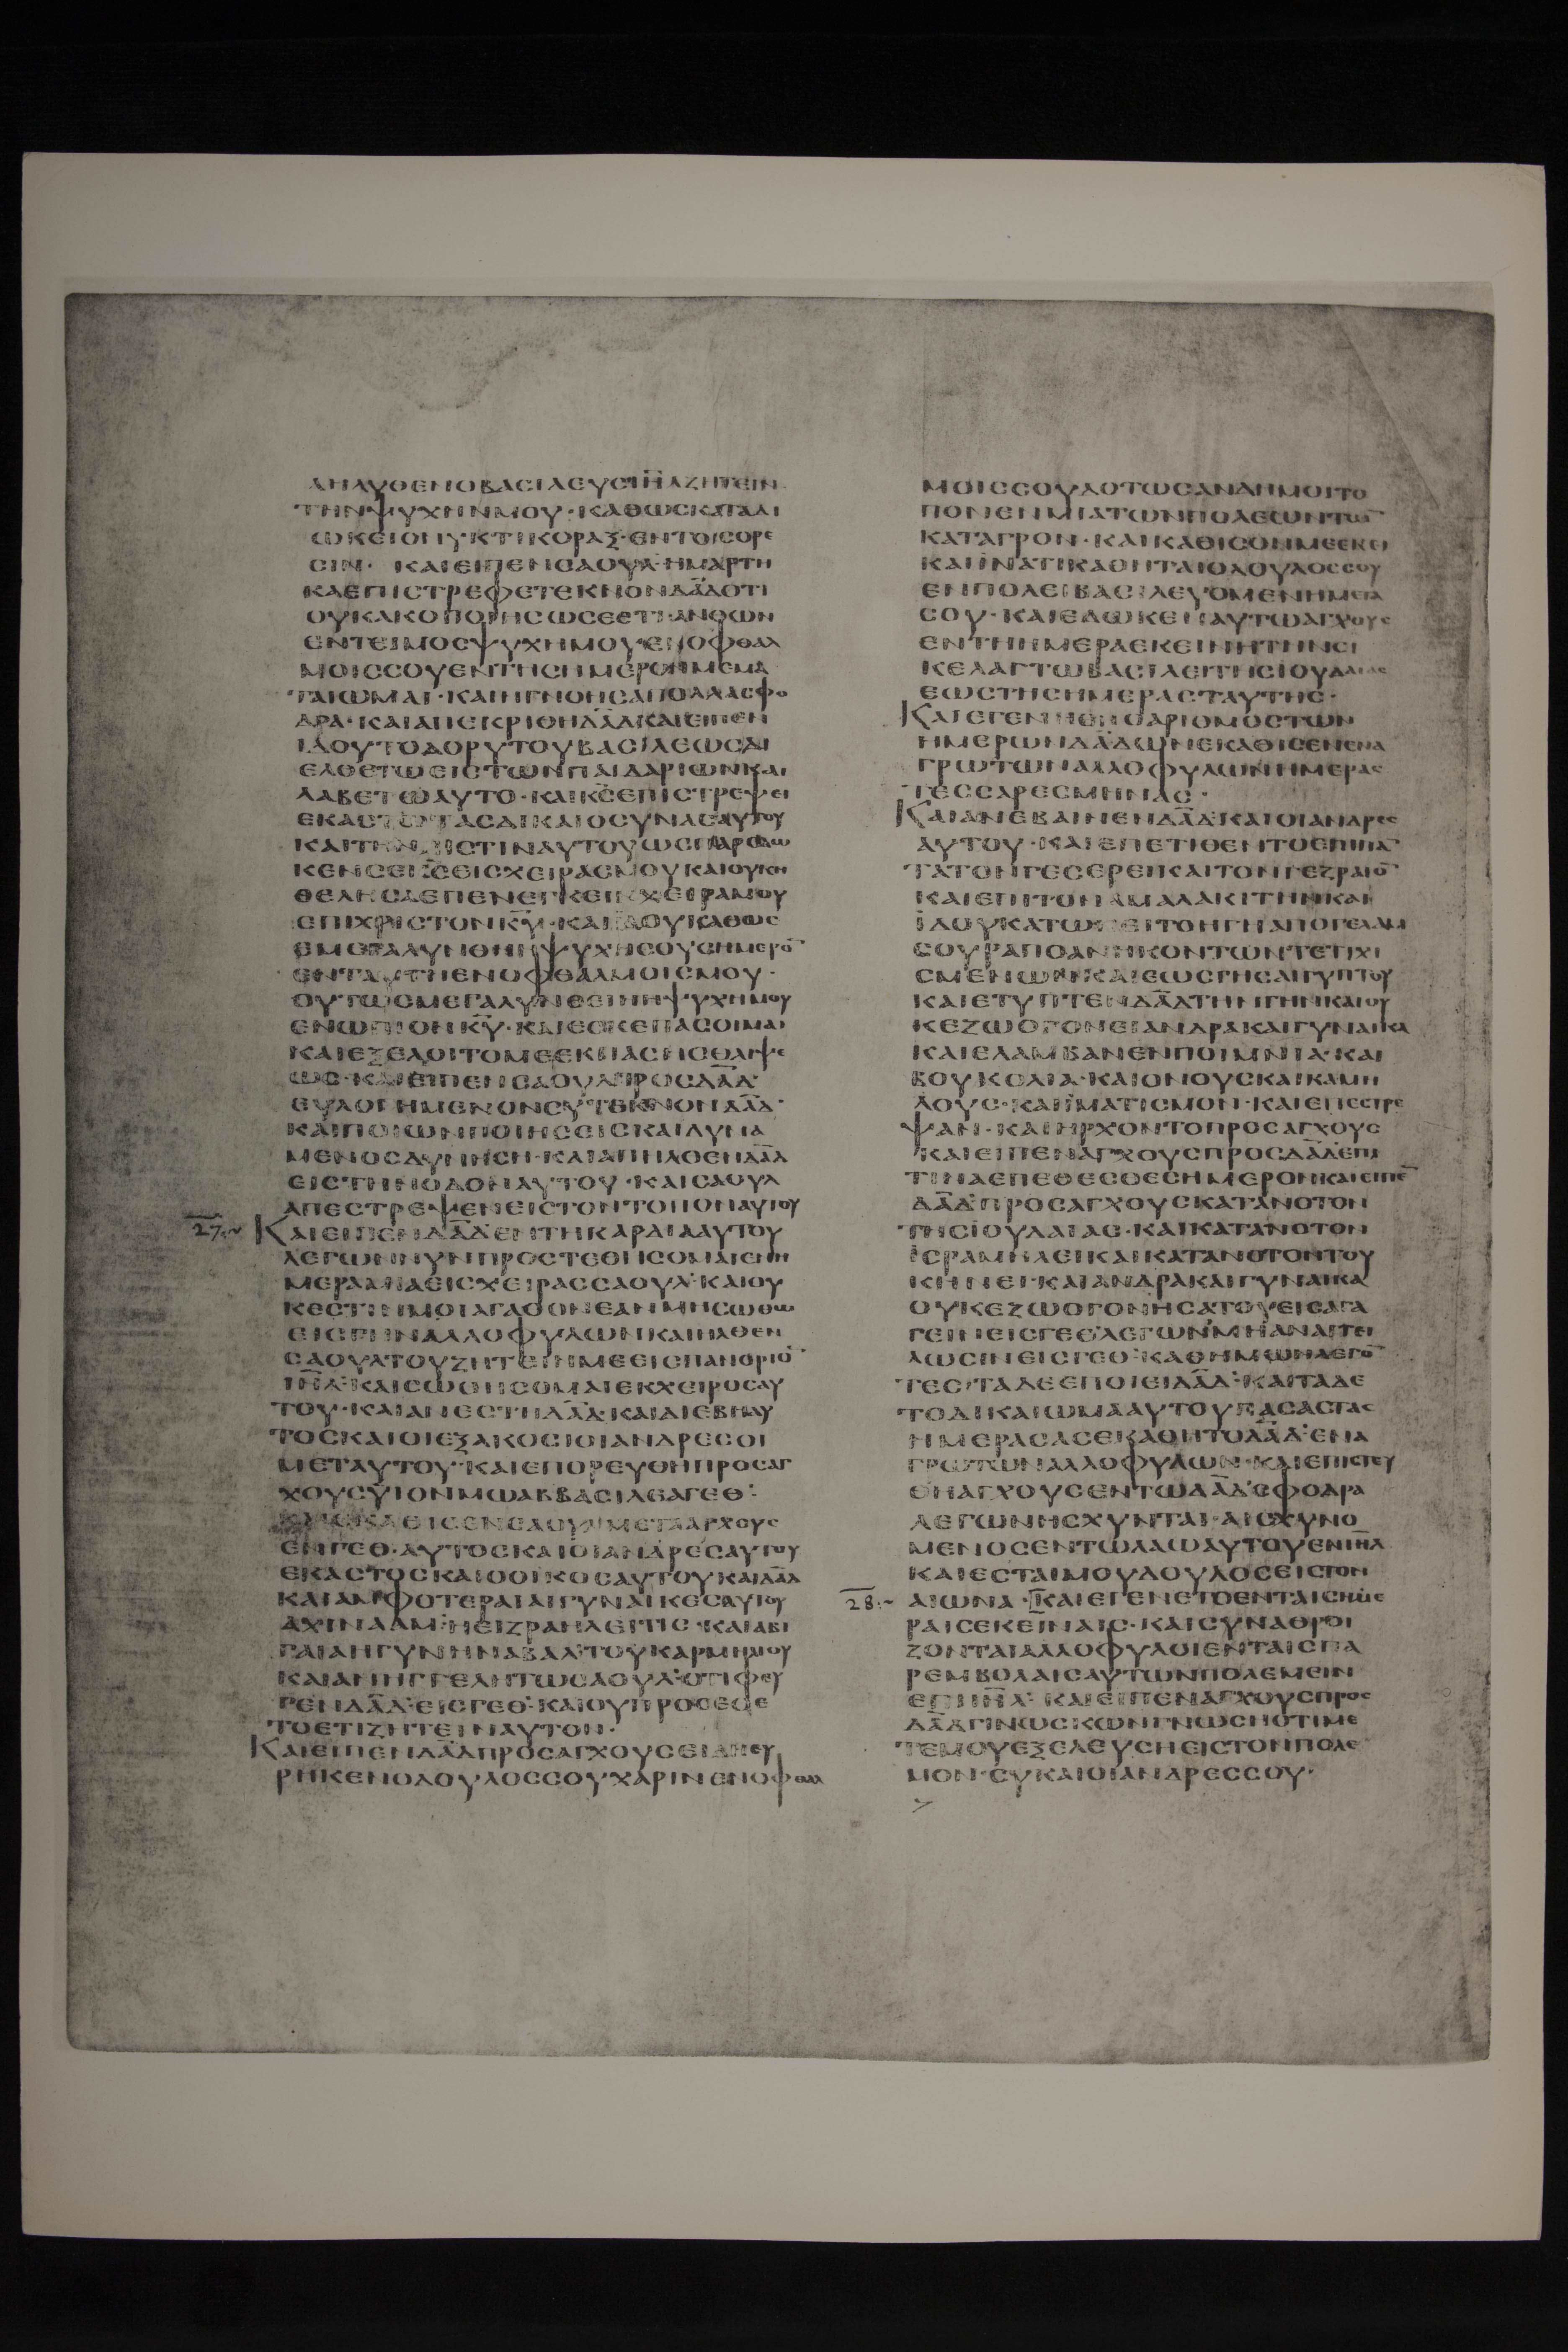 ΛΗΛΥΘΕΝΟΒΑΣΙΛΕΥΣΙΗΛΖΗΤΕΙΝ
ΤΗΝΨΥΧΗΝΜΟΥ·ΚΑΘΩΣΚΑΤΑΔΙ
ΩΚΕΙΟΝΥΚΤΙΚΟΡΑΞ·ΕΝΤΟΙΣΟΡΕ
ΣΙΝ· ΚΑΙΕΙΠΕΝΣΑΟΥΛ·ΗΜΑΡΤΗ
ΚΑΕΠΙΣΤΡΕΦΕΤΕΚΝΟΝΔΑΔΟΤΙ
ΟΥΚΑΚΟΠΟΙΗΣΩΣΕΕΤΙ·ΑΝΘΩΝ
ΕΝΤΕΙΜΟΣΨΥΧΗΜΟΥΕΝΟΦΘΑΛ
ΜΟΙΣΣΟΥΕΝΤΗΣΗΜΕΡΟΝΜΕΜΑ
ΤΑΙΩΜΑΙ·ΚΑΙΗΓΝΟΗΣΑΠΟΛΛΑΣΦΟ
ΔΡΑ·ΚΑΙΑΠΕΚΡΙΘΗΔΑΔΚΑΙΕΙΠΕΝ
ΙΔΟΥΤΟΔΟΡΥΤΟΥΒΑΣΙΛΕΩΣΔΙ
ΕΛΘΕΤΩΕΙΣΤΩΝΠΑΙΔΑΡΙΩΝΚΑΙ
ΛΑΒΕΤΩΑΥΤΟ·ΚΑΙΚΣΕΠΙΣΤΡΕΨΕΙ
ΕΚΑΣΤΩΤΑΣΔΙΚΑΙΟΣΥΝΑΣΑΥΤΟΥ
ΚΑΙΤΗΝΠΙΣΤΙΝΑΥΤΟΥΩΣΠΑΡΕΔΩ
ΚΕΝΣΕΚΣΕΙΣΧΕΙΡΑΣΜΟΥΚΑΙΟΥΚΗ
ΘΕΛΗΣΑΕΠΕΝΕΓΚΕΙΝΧΕΙΡΑΜΟΥ
ΕΠΙΧΡΙΣΤΟΝΚΥ·ΚΑΙΙΔΟΥΚΑΘΩΣ
ΕΜΕΓΑΛΥΝΘΗΗΨΥΧΗΣΟΥΣΗΜΕΡΟ
ΕΝΤΑΥΤΗΕΝΟΦΘΑΛΜΟΙΣΜΟΥ·
ΟΥΤΩΣΜΕΓΑΛΥΝΘΕΙΗΗΨΥΧΗΜΟΥ
ΕΝΩΠΙΟΝΚΥ·ΚΑΙΕΣΚΕΠΑΣΟΙΜΑΙ
ΚΑΙΕΞΕΛΟΙΤΟΜΕΕΚΠΑΣΗΣΘΛΙΨΕ
ΩΣ·ΚΑΙΕΙΠΕΝΣΑΟΥΛΠΡΟΣΔΑΔ
ΕΥΛΟΓΗΜΕΝΟΝΣΥΤΕΚΝΟΝΔΑΔ·
ΚΑΙΠΟΙΩΝΠΟΙΗΣΕΙΣΚΑΙΔΥΝΑ
ΜΕΝΟΣΔΥΝΗΣΗ·ΚΑΙΑΠΗΛΘΕΝΔΑΔ
ΕΙΣΤΗΝΟΔΟΝΑΥΤΟΥ·ΚΑΙΣΑΟΥΛ
ΑΠΕΣΤΡΕΨΕΝΕΙΣΤΟΝΤΟΠΟΝΑΥΤΟΥ
27.~ ΚΑΙΕΙΠΕΝΔΑΔΕΝΤΗΚΑΡΔΙΑΑΥΤΟΥ
ΛΕΓΩΝΝΥΝΠΡΟΣΤΕΘΗΣΟΜΑΙΕΝΗ
ΜΕΡΑΜΙΑΕΙΣΧΕΙΡΑΣΣΑΟΥΛ·ΚΑΙΟΥ
ΚΕΣΤΙΝΜΟΙΑΓΑΘΟΝΕΑΝΜΗΣΩΘΩ
ΕΙΣΓΗΝΑΛΛΟΦΥΛΩΝΚΑΙΑΝΘΕΝ
ΣΑΟΥΛΤΟΥΖΗΤΕΙΝΜΕΕΙΣΠΑΝΟΡΙΟ
ΙΗΛ·ΚΑΙΣΩΘΗΣΟΜΑΙΕΚΧΕΙΡΟΣΑΥ
ΤΟΥ·ΚΑΙΑΝΕΣΤΗΔΑΔ·ΚΑΙΔΙΕΒΗΑΥ
ΤΟΣΚΑΙΟΙΕΞΑΚΟΣΙΟΙΑΝΔΡΕΣΟΙ
ΜΕΤΑΥΤΟΥ·ΚΑΙΕΠΟΡΕΥΘΗΠΡΟΣΑΓ
ΧΟΥΣΥΙΟΝΜΩΑΒΒΑΣΙΛΕΑΓΕΘ:
ΚΑΙΕΚΑΘΙΣΕΝΣΑΟΥΛΜΕΤΑΑΓΧΟΥΣ
ΕΝΓΕΘ·ΑΥΤΟΣΚΑΙΟΙΑΝΔΡΕΣΑΥΤΟΥ
ΕΚΑΣΤΟΣΚΑΙΟΟΙΚΟΣΑΥΤΟΥΚΑΙΔΑΔ
ΚΑΙΑΜΦΟΤΕΡΑΙΑΙΓΥΝΑΙΚΕΣΑΥΤΟΥ
ΑΧΙΝΑΑΜ·ΗΕΙΖΡΑΗΛΕΙΤΙΣ·ΚΑΙΑΒΙ
ΓΑΙΑΗΓΥΝΗΝΑΒΑΛ·ΤΟΥΚΑΡΜΗΛΙΟΥ
ΚΑΙΑΝΗΓΓΕΛΗΤΩΣΑΟΥΛ·ΟΤΙΦΕΥ
ΓΕΝΔΑΔ·ΕΙΣΓΕΘ·ΚΑΙΟΥΠΡΟΣΕΘΕ
ΤΟΕΤΙΖΗΤΕΙΝΑΥΤΟΝ·
ΚΑΙΕΙΠΕΝΔΑΔΠΡΟΣΑΓΧΟΥΣΕΙΔΗΕΥ
ΡΗΚΕΝΟΔΟΥΛΟΣΣΟΥΧΑΡΙΝΕΝΟΦΘΑΛ
ΜΟΙΣΣΟΥΔΟΤΩΣΑΝΔΗΜΟΙΤΟ
ΠΟΝΕΝΜΙΑΤΩΝΠΟΛΕΩΝΤΩ
ΚΑΤΑΓΡΟΝ·ΚΑΙΚΑΘΙΣΟΜΕΕΚΕΙ
ΚΑΙΙΝΑΤΙΚΑΘΗΤΑΙΟΔΟΥΛΟΣΣΟΥ
ΕΝΠΟΛΕΙΒΑΣΙΛΕΥΟΜΕΝΗΜΕΤΑ
ΣΟΥ·ΚΑΙΕΔΩΚΕΝΑΥΤΩΑΓΧΟΥΣ
ΕΝΤΗΗΜΕΡΑΕΚΕΙΝΗΤΗΝΣΙ
ΚΕΛΑΓΤΩΒΑΣΙΛΕΙΤΗΣΙΟΥΔΑΙΑΣ
ΕΩΣΤΗΣΗΜΕΡΑΣΤΑΥΤΗΣ·
ΚΑΙΕΓΕΝΗΘΗΟΑΡΙΘΜΟΣΤΩΝ
ΗΜΕΡΩΝΔΑΔΩΝΕΚΑΘΙΣΕΝΕΝΑ
ΓΡΩΤΩΝΑΛΛΟΦΥΛΩΝΗΜΕΡΑΣ
ΤΕΣΣΑΡΕΣΜΗΝΑΣ·
ΚΑΙΑΝΕΒΑΙΝΕΝΔΑΔ·ΚΑΙΟΙΑΝΔΡΕΣ
ΑΥΤΟΥ·ΚΑΙΕΠΕΤΙΘΕΝΤΟΕΠΙΠΑ
ΤΑΤΟΝΓΕΣΕΡΕΙΚΑΙΤΟΝΓΕΖΡΑΙΟ
ΚΑΙΕΠΙΤΟΝΑΜΑΛΑΚΙΤΗΝΚΑΙ
ΙΔΟΥΚΑΤΩΚΕΙΤΟΗΓΗΑΠΟΓΕΛΑΜ
ΣΟΥΡΑΠΟΑΝΗΚΟΝΤΩΝΤΕΤΙΧΙ
ΣΜΕΝΩΝΚΑΙΕΩΣΓΗΣΑΙΓΥΠΤΟΥ
ΚΑΙΕΤΥΠΤΕΝΔΑΔΤΗΝΓΗΝΚΑΙΟΥ
ΚΕΖΩΟΓΟΝΕΙΑΝΔΡΑΚΑΙΓΥΝΑΙΚΑ
ΚΑΙΕΛΑΜΒΑΝΕΝΠΟΙΜΝΙΑ·ΚΑΙ
ΒΟΥΚΟΛΙΑ·ΚΑΙΟΝΟΥΣΚΑΙΚΑΜΗ
ΛΟΥΣ·ΚΑΙΙΜΑΤΙΣΜΟΝ·ΚΑΙΕΠΕΣΤΡΕ
ΨΑΝ·ΚΑΙΗΡΧΟΝΤΟΠΡΟΣΑΓΧΟΥΣ
ΚΑΙΕΙΠΕΝΑΓΧΟΥΣΠΡΟΣΔΑΔΕΠΙ
ΤΙΝΑΕΠΕΘΕΣΘΕΣΗΜΕΡΟΝΚΑΙΕΙΠΕ
ΔΑΔΠΡΟΣΑΓΧΟΥΣΚΑΤΑΝΟΤΟΝ
ΤΗΣΙΟΥΔΑΙΑΣ·ΚΑΙΚΑΤΑΝΟΤΟΝ
ΙΕΡΑΜΗΛΕΙΚΑΙΚΑΤΑΝΟΤΟΝΤΟΥ
ΚΗΝΕΙ·ΚΑΙΑΝΔΡΑΚΑΙΓΥΝΑΙΚΑ
ΟΥΚΕΖΩΟΓΟΝΗΣΑΤΟΥΕΙΣΑΓΑ
ΓΕΙΝΕΙΣΓΕΘΛΕΓΩΝΜΗΑΝΑΓΓΕΙ
ΛΩΣΙΝΕΙΣΓΕΘ·ΚΑΘΗΜΩΝΛΕΓΟ
ΤΕΣ·ΤΑΔΕΕΠΟΙΕΙΔΑΔ·ΚΑΙΤΑΔΕ
ΤΟΔΙΚΑΙΩΜΑΑΥΤΟΥΠΑΣΑΣΤΑΣ
ΗΜΕΡΑΣΑΣΕΚΑΘΗΤΟΔΑΔ·ΕΝΑ
ΓΡΩΤΩΝΑΛΛΟΦΥΛΩΝ·ΚΑΙΕΠΙΣΤΕΥ
ΘΗΑΓΧΟΥΣΕΝΤΩΔΑΔΣΦΟΔΡΑ
ΛΕΓΩΝΗΣΧΥΝΤΑΙ·ΑΙΣΧΥΝΟ
ΜΕΝΟΣΕΝΤΩΛΑΩΑΥΤΟΥΕΝΙΗΛ
ΚΑΙΕΣΤΑΙΜΟΥΔΟΥΛΟΣΕΙΣΤΟΝ
28.~ ΑΙΩΝΑ·ΚΑΙΕΓΕΝΕΤΟΕΝΤΑΙΣΗΜΕ
ΡΑΙΣΕΚΕΙΝΑΙΣ·ΚΑΙΣΥΝΑΘΡΟΙ
ΖΟΝΤΑΙΑΛΛΟΦΥΛΟΙΕΝΤΑΙΣΠΑ
ΡΕΜΒΟΛΑΙΣΑΥΤΩΝΠΟΛΕΜΕΙΝ
ΕΠΙΙΗΛ· ΚΑΙΕΙΠΕΝΑΓΧΟΥΣΠΡΟΣ
ΔΑΔΓΙΝΩΣΚΩΝΓΝΩΣΗΟΤΙΜΕ
ΤΕΜΟΥΕΞΕΛΕΥΣΗΕΙΣΤΟΝΠΟΛΕ
ΜΟΝ·ΣΥΚΑΙΟΙΑΝΔΡΕΣΣΟΥ·